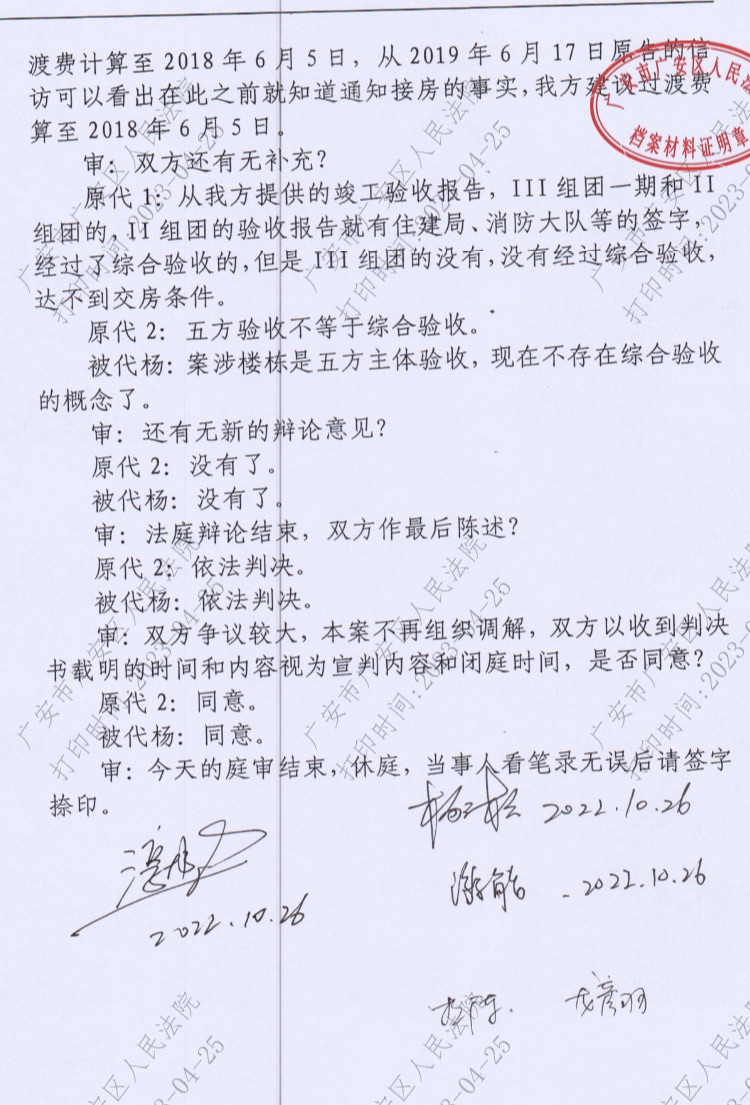 渡费计算至 2018 年 6 月 5 日，从 2019 年 6 月 17 日原告的信
访可以看出在此之前就知道通知接房的事实，我方建议过渡费
算至 2018 年 6 月 5 日。
审：双方还有无补充？
原代 1：从我方提供的竣工验收报告，III 组团一期和 II
组团的，II 组团的验收报告就有住建局、消防大队等的签字，
经过了综合验收的，但是 III 组团的没有，没有经过综合验收，
达不到交房条件。
原代 2：五方验收不等于综合验收。
被代杨：案涉楼栋是五方主体验收，现在不存在综合验收
的概念了。
审：还有无新的辩论意见？
原代 2：没有了。
被代杨：没有了。
审：法庭辩论结束，双方作最后陈述？
原代 2：依法判决。
被代杨：依法判决。
审：双方争议较大，本案不再组织调解，双方以收到判决
书载明的时间和内容视为宣判内容和闭庭时间，是否同意？
原代 2：同意。
被代杨：同意。
审：今天的庭审结束，休庭，当事人看笔录无误后请签字
捺印。
2022.10.26
2022.10.26
2022.10.26
广安市广安区人民法
档案材料证明章
广安市广安区人民法院
打印时间:2023-04-25